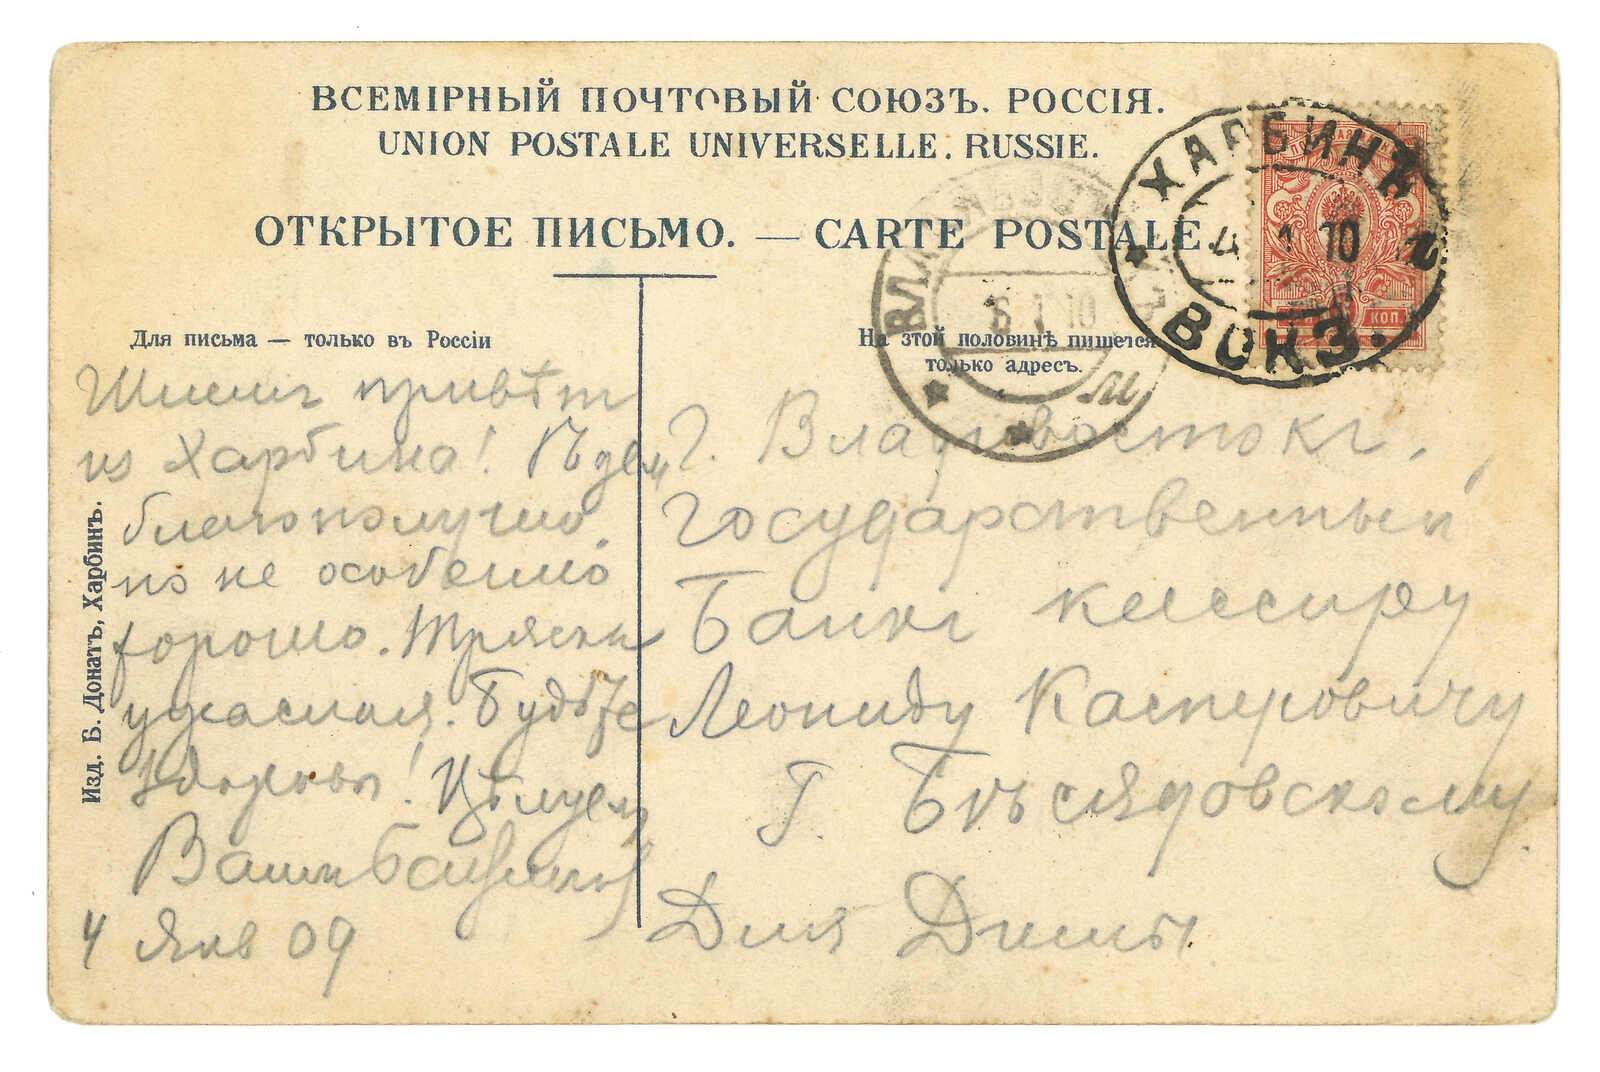 ВСЕМІРНЫЙ ПОЧТОВЫЙ СОЮЗЪ. РОССІЯ.
UNION POSTALE UNIVERSELLE. RUSSIE.
ОТКРЫТОЕ ПИСЬМО. — CARTE POSTALE.
ХАРБИНЪ
4 1 10
ВОКЗ.
ВЛАДИВОСТОКЪ
6 1 10
КОП.
Для письма — только въ Россіи
На этой половинѣ пишется
только адресъ.
Шлемъ привѣт
из Харбина! Ѣдем
благополучно,
но не особенно
хорошо. Тряска
ужасная. Будьте
здоровы! Цѣлуем
Ваши
4 Янв 09
г. Владивостокъ.
Государственный
Банкъ кассиру
Леониду Касперовичу
Г. Бѣсядовскому
Для Димы
Изд. Б. Донатъ, Харбинъ.